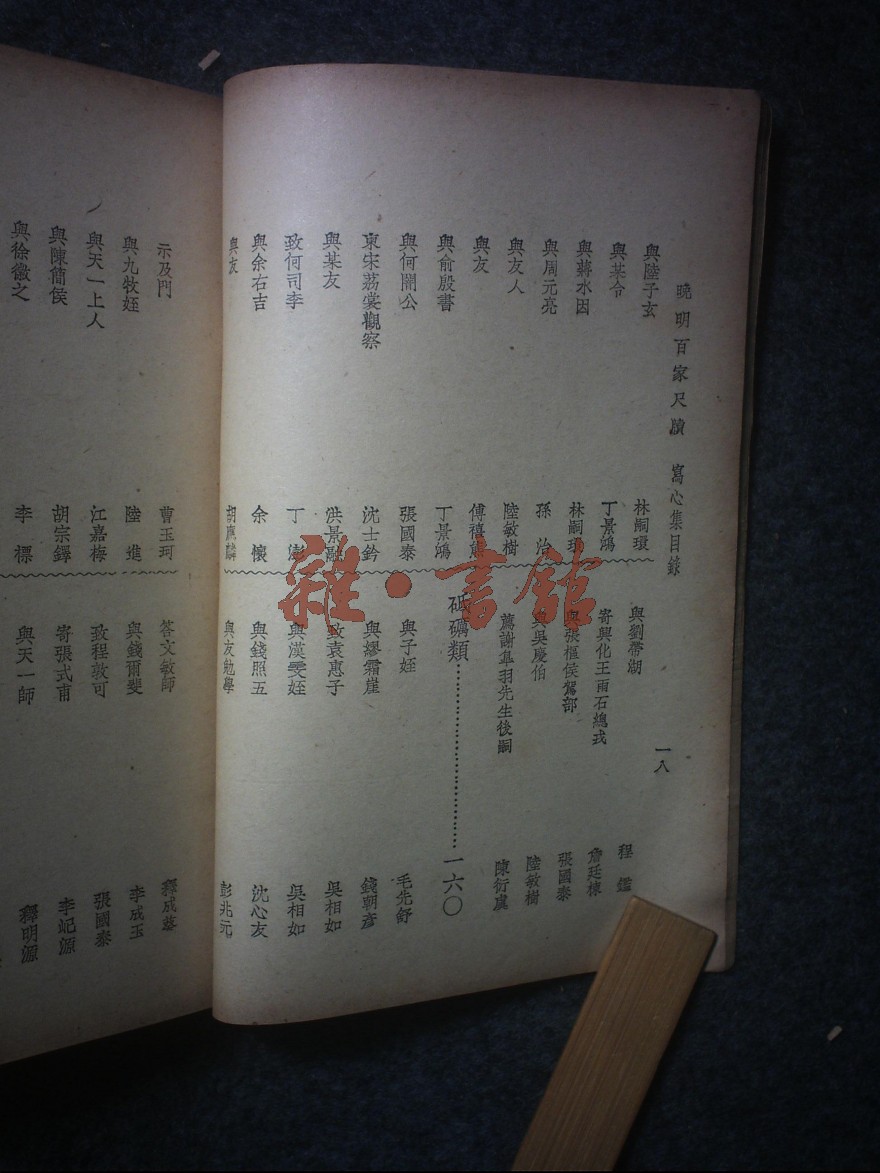 曉明百家尺牘 寫心集目錄
一八
與陸子玄 林嗣環
與某令 丁景鴻
與蔣水因 林嗣環
與周元亮 孫治
與友人 陸敏樹
與友 傅禧
與俞殷書 丁景鴻
與何闇公 張國泰
柬宋荔裳觀察 沈士鈐
與某友 洪景融
致何司李 丁澎
與余右吉 余懷
與友 胡應麟
與劉帶湖 程鑑
寄興化王雨石總戎 詹廷棟
與張樞侯駕部 張國泰
與吳慶伯 陸敏樹
薦謝皋羽先生後嗣 陳衍虞
砥礪類 一六〇
與子姪 毛先舒
與繆霜崖 錢朝彥
致袁惠子 吳相如
與漢雯姪 吳相如
與錢照五 沈心友
與友勉學 彭兆元
示及門 曹玉珂
與九牧姪 陸進
與天一上人 江嘉梅
與陳簡侯 胡宗鐸
與徐徽之 李標
答文敏師 釋成
與錢爾斐 李成玉
致程敦可 張國泰
寄張式甫 李屺源
與天一師 釋明源
雜·書館